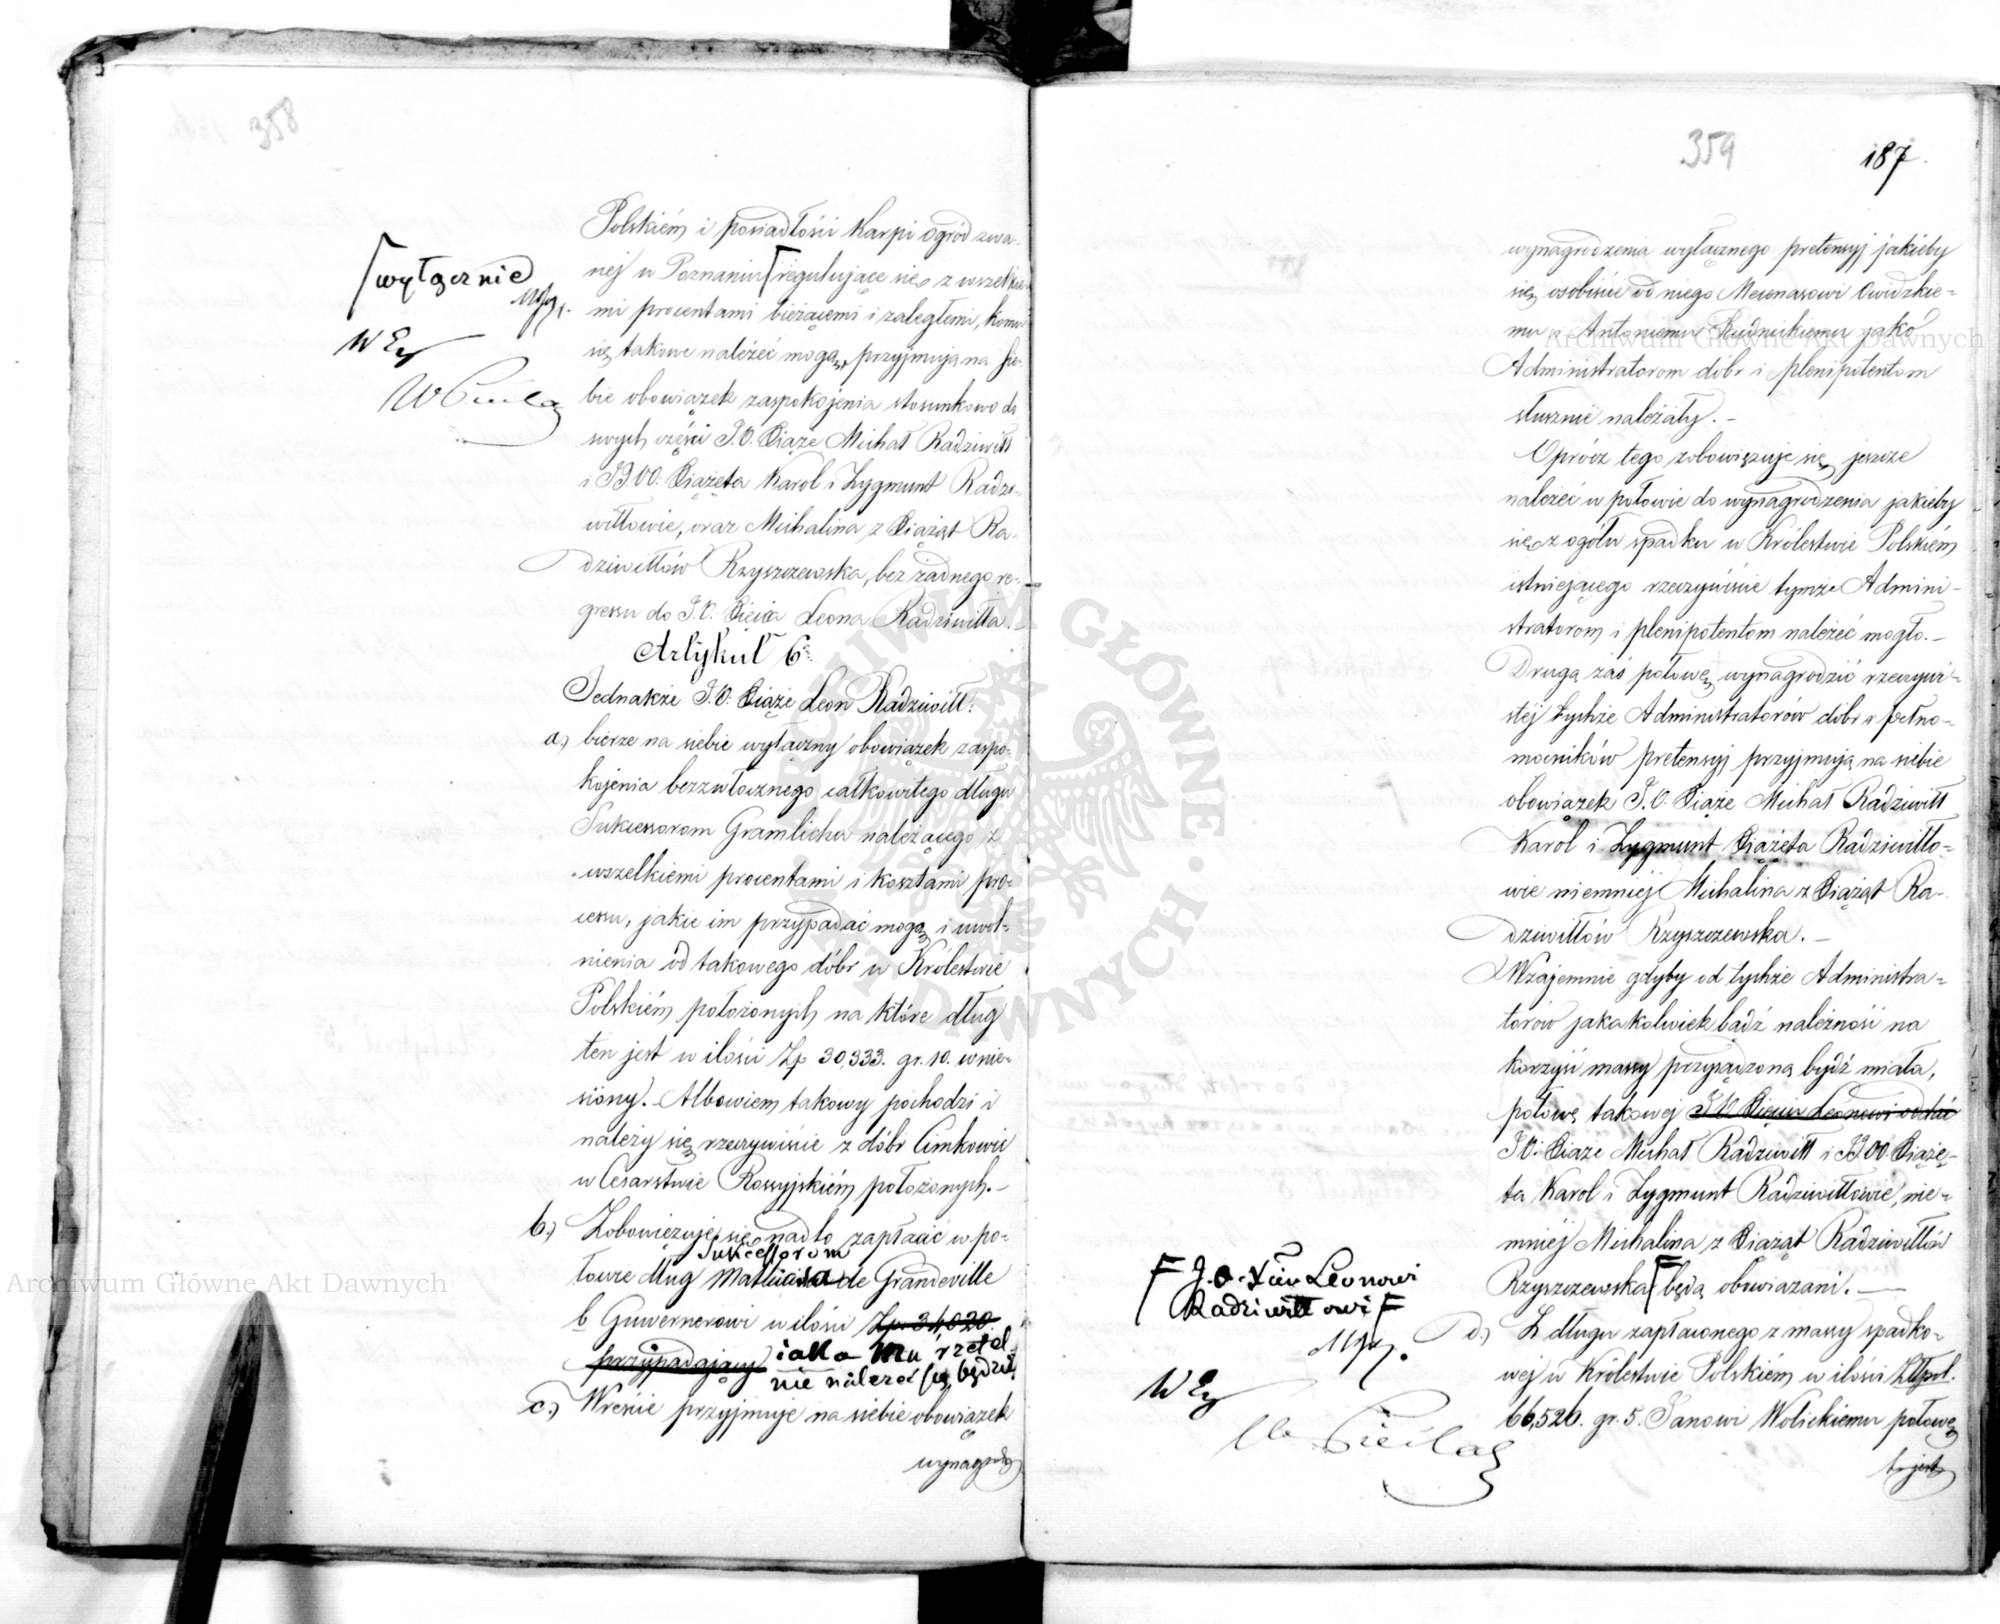 358
Polskiém i posiadłości Karpi ogród zwa-
nej w Poznaniu regulujące się z wszelkie-
mi procentami bieżącemi i zaległemi, komu
się takowe należéć mogą, przyjmują na sie-
bie obowiązek zaspokojenia stosunkowo do
swych części J.O. Xiąże Michał Radziwiłł
i JJ.OO. Xiążęta Karol i Zygmunt Radzi-
wiłłowie, oraz Michalina z Xiążąt Ra-
dziwiłłów Rzyszczewska, bez żadnego re-
gressu do J.O. Xięcia Leona Radziwiłła.-
Artykuł 6.
Jednakże J.O. Xiąże Leon Radziwiłł:
a) bierze na siebie wyłączny obowiązek zaspo-
kojenia bezzwłocznego całkowitego długu
Sukcessorom Gramlicha należącego z
wszelkiemi procentami i kosztami pro-
cessu, jakie im przypadać mogą i uwol-
nienia od takowego dóbr w Królestwie
Polskiém położonych na które dług
ten jest w ilości Zp 30,333. gr. 10. wnie-
siony. Albowiem takowy pochodzi i
należy się rzeczywiście z dóbr Cimkowic
w Cesarstwie Rossyjskiém położonych.-
b) Zobowiązuje się nadto zapłacić w po-
Sukcessorom
łowie dług Mathiasa de Grandeville
b Guwernerowi w ilości Zp. 34,020.
przypadający iaka Mu rzetel-
nie należeć się będzie
c) Wreście przyjmuje na siebie obowiązek
wynagro
wyłącznie
359
187.
wynagrodzenia wyłącznego pretensyj jakieby
się osobiście od niego Mecenasowi Owidzkie-
mu i Antoniemu Rudnickiemu jako
Administratorom dóbr i plenipotentom
słusznie należały.-
Oprócz tego zobowiązuje się jeszcze
należéć w połowie do wynagrodzenia jakieby
się z ogółu spadku w Królestwie Polskiém
istniejącego rzeczywiście tymże Admini-
stratorom i plenipotentom należéć mogło.-
Drugą zaś połowę wynagrodzić rzeczywi-
stéj tychże Administratorów dóbr i pełno-
mocników pretensyj przyjmują na siebie
obowiązek J.O. Xiąże Michał Radziwiłł
Karol i Zygmunt Xiążęta Radziwiłło-
wie niemniéj Michalina z Xiążąt Ra-
dziwiłłów Rzyszczewska.-
Wzajemnie gdyby od tychże Administra-
torów jakakolwiek bądź należność na
korzyść massy przysądzoną bydź miała,
połowę takowej J.O. Xięciu Leonowi oddać
J.O. Xiąże Michał Radziwiłł i JJ.OO. Xiążę-
ta Karol i Zygmunt Radziwiłłowie, nie-
mniéj Michalina z Xiążąt Radziwiłłów
Rzyszczewska będą obowiązani.-
d) Z długu zapłaconego z massy spadko-
wej w Królestwie Polskiém w ilości Złpol.
66,526. gr. 5. Janowi Wolickiemu połowę
to jest
J.O. Xięciu Leonowi
Radziwiłłowi
Archiwum Główne Akt Dawnych
Archiwum Główne Akt Dawnych
ARCHIWUM GŁÓWNE AKT DAWNYCH